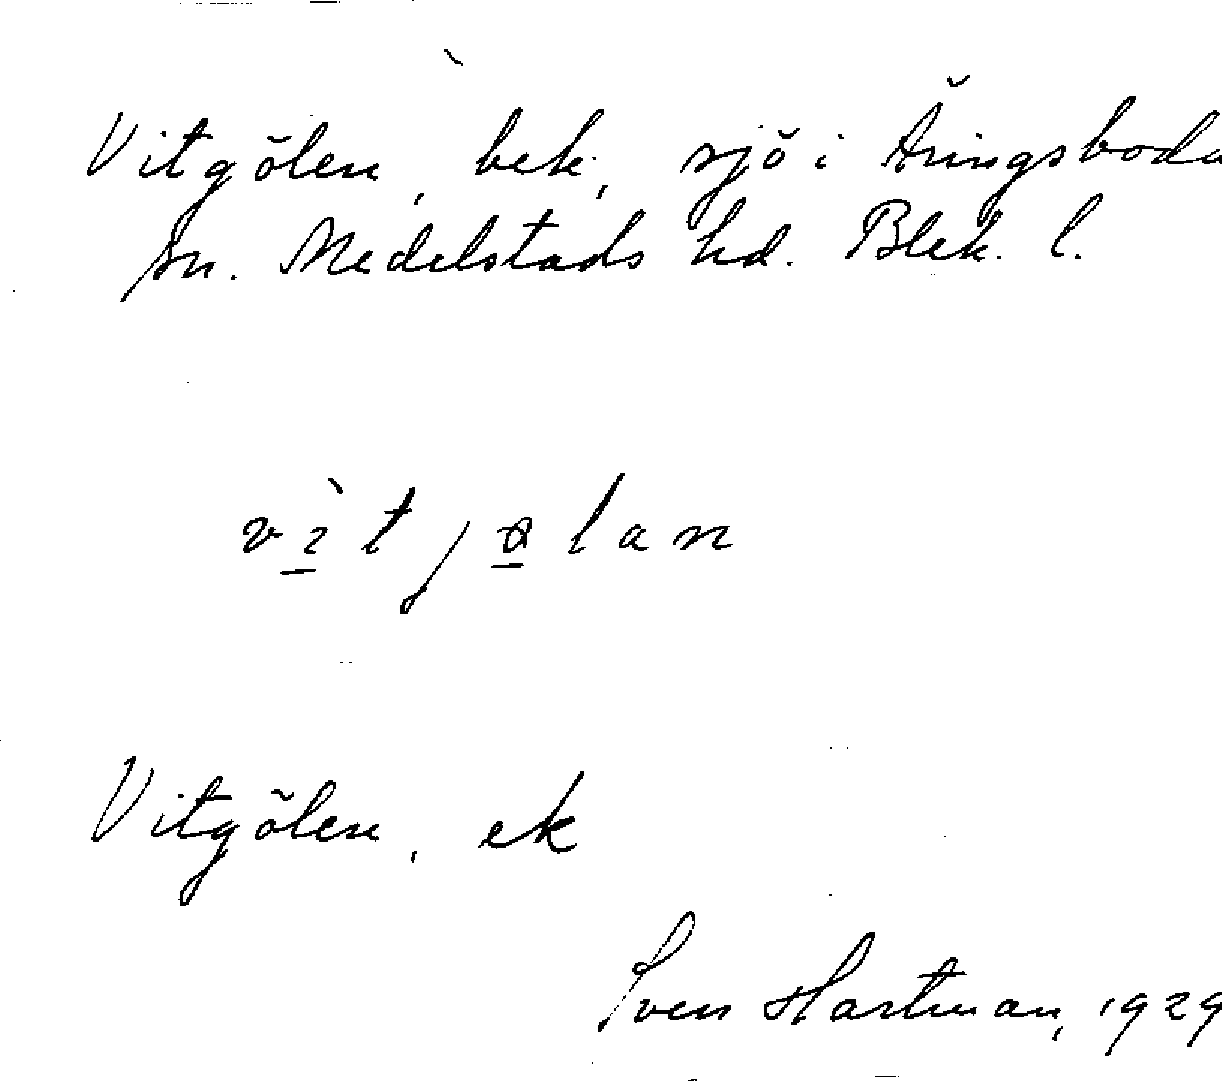 Vitgölen, bek, sjö i Äringsboda
sn. Medelstads hd. Blek. l.
vìtjølan
Vitgölen, ek
Sven Hartman, 1929